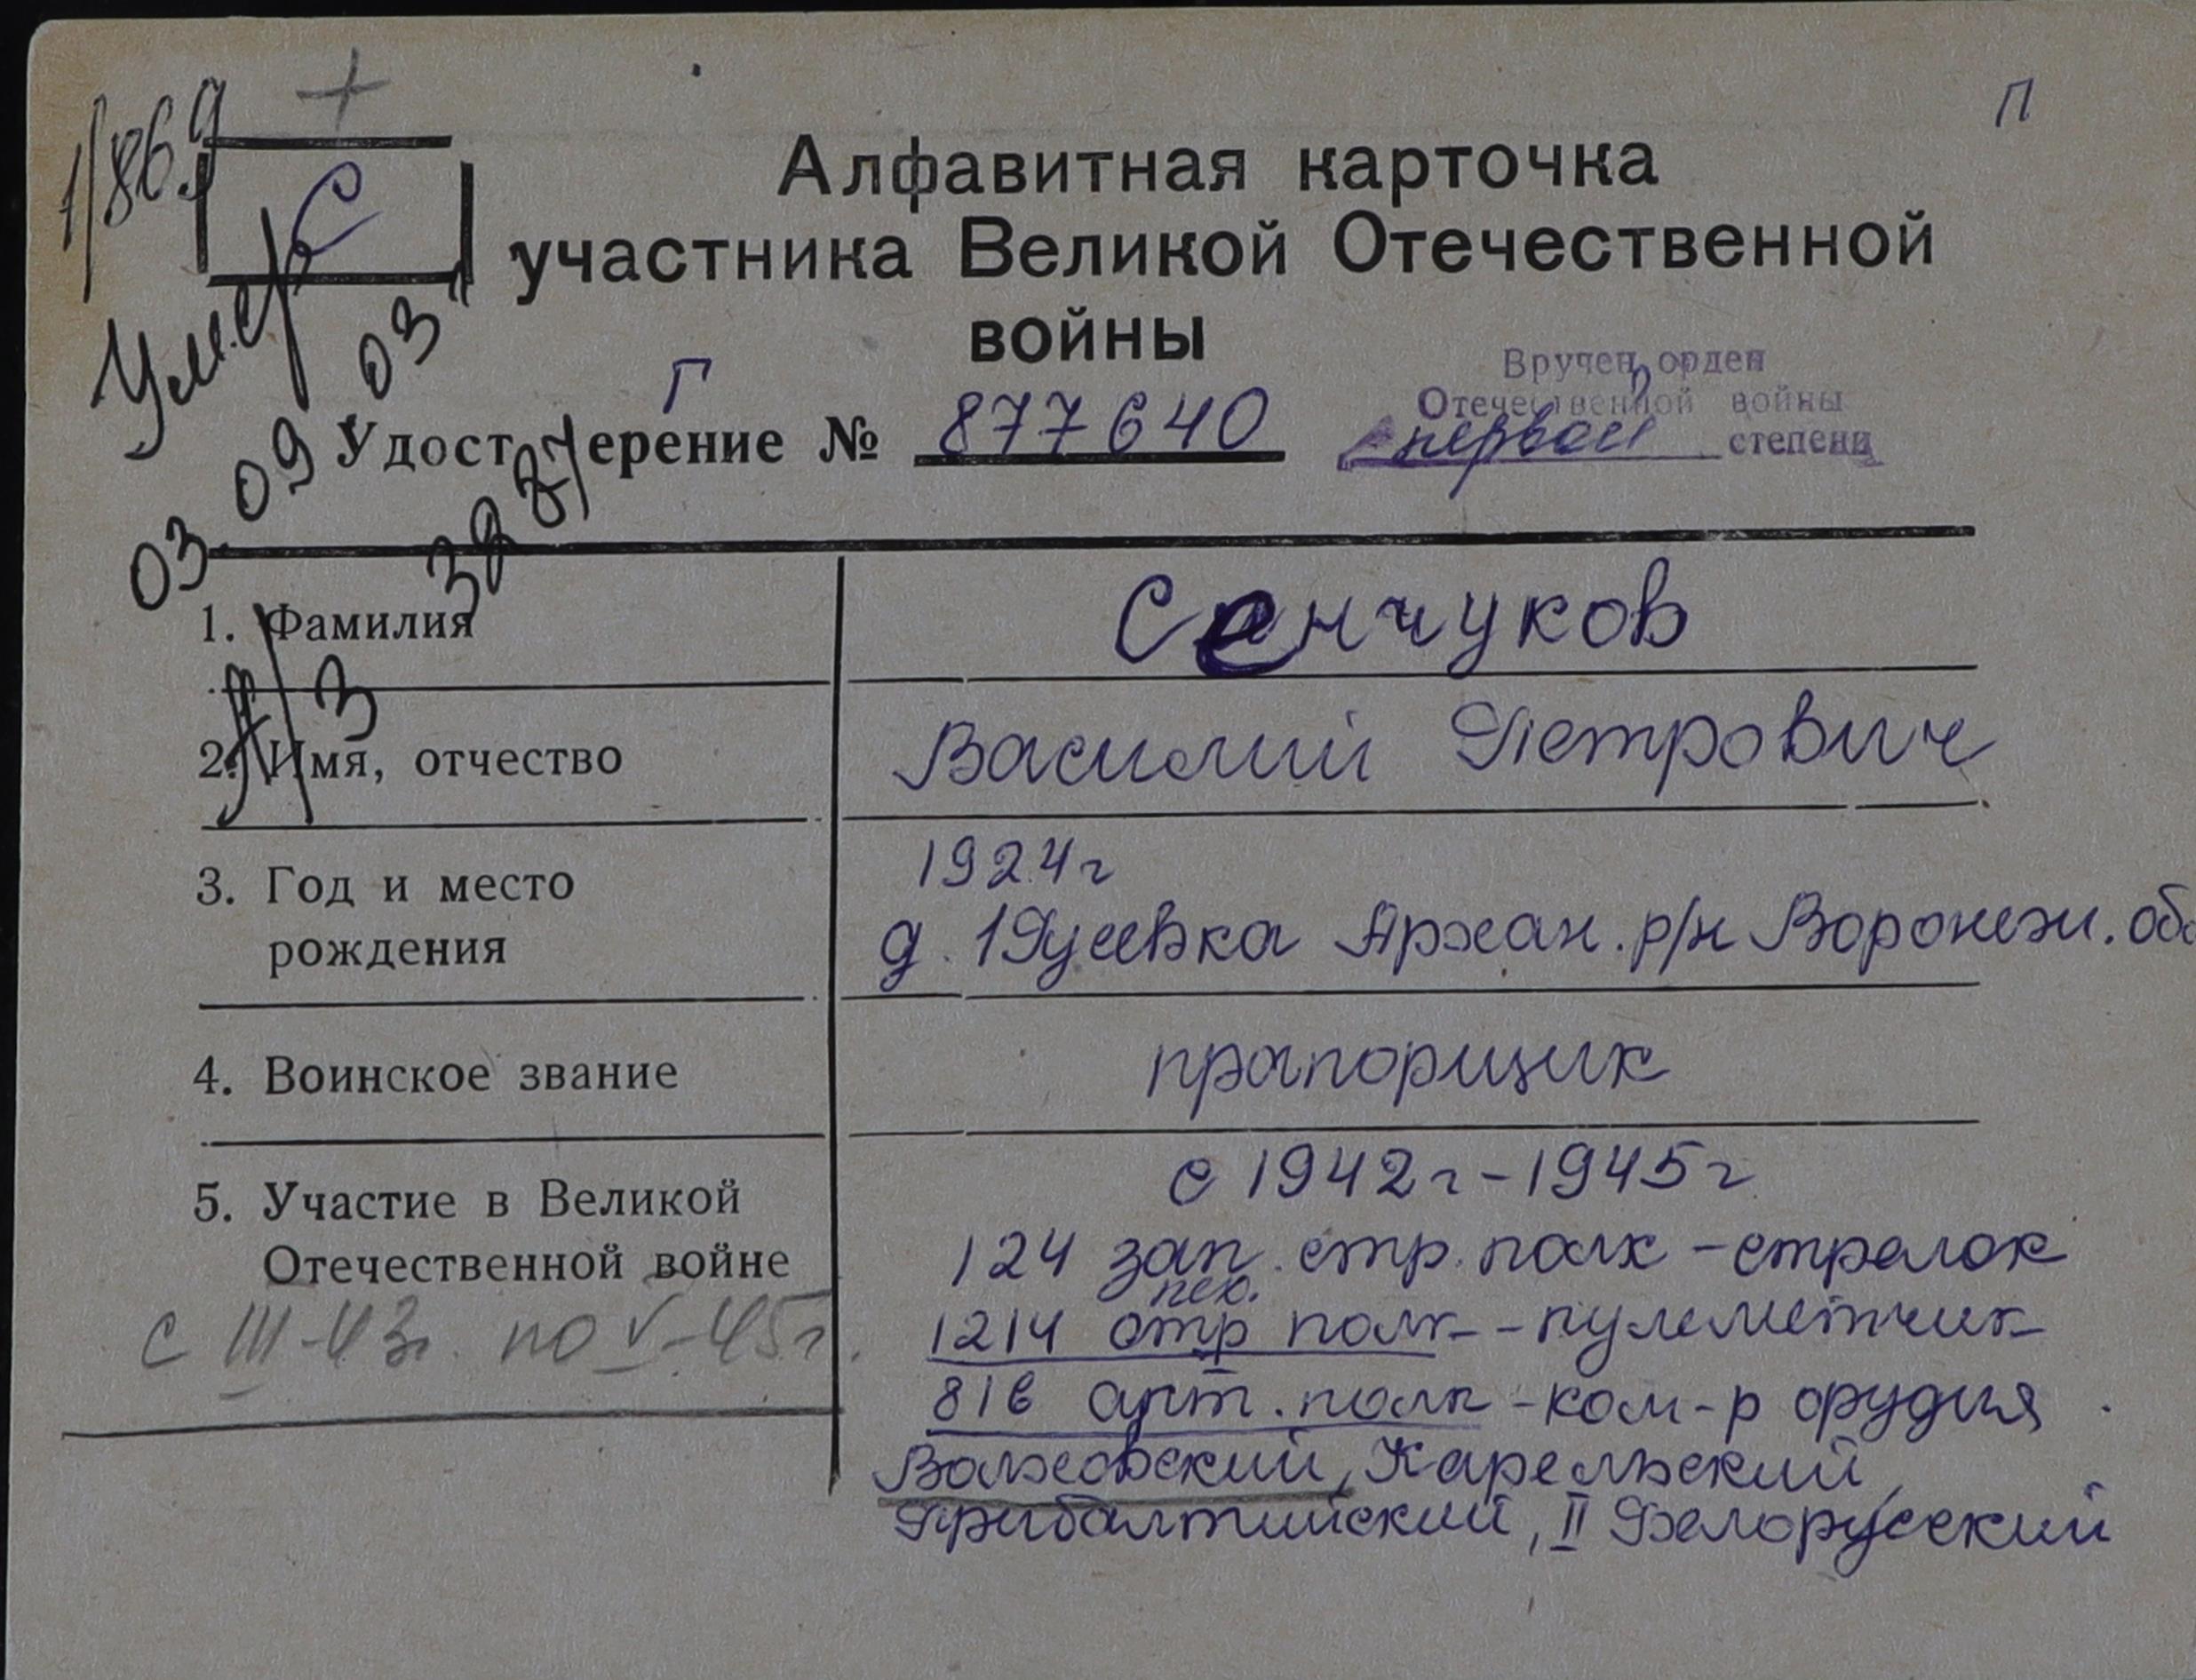 +
П
1/869
С
Умер
03 09 03
3887
Л/З
Алфавитная карточка
участника Великой Отечественной
войны
Г
Удостоверение № 877640
Вручен орден
Отечественной войны
первой степени
1. Фамилия Сенчуков
2. Имя, отчество Василий Петрович
3. Год и место рождения
1924г
д. 1 Гусевка Архан. р/н Воронеж. об
4. Воинское звание прапорщик
5. Участие в Великой
Отечественной войне
с III-43г. по V-45г.
с 1942г-1945г
124 зап. стр. полк - стрелок
1214 стр полк - пулеметчик
816 арт. полк - ком-р орудия
Волховский, Карельский,
Прибалтийский, II Белорусский